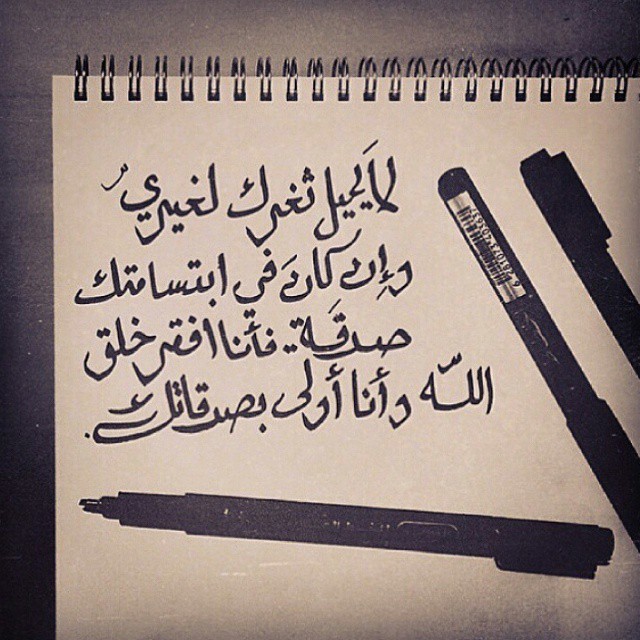 لا يَميل ثغرك لغيري
وإن كانَ في ابتسامتك
صدقَة.. فأنا افقر خلق
اللّه وأنا أولى بصدقاتك.